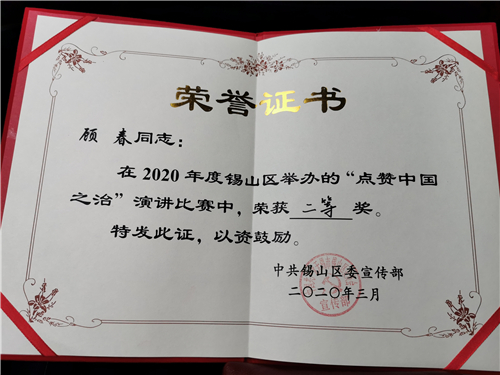 荣誉证书
顾 春同志：
在 2020 年度锡山区举办的“点赞中国
之治”演讲比赛中，荣获 二等 奖。
特发此证，以资鼓励。
中共锡山区委宣传部
二〇二〇年三月
宣传部